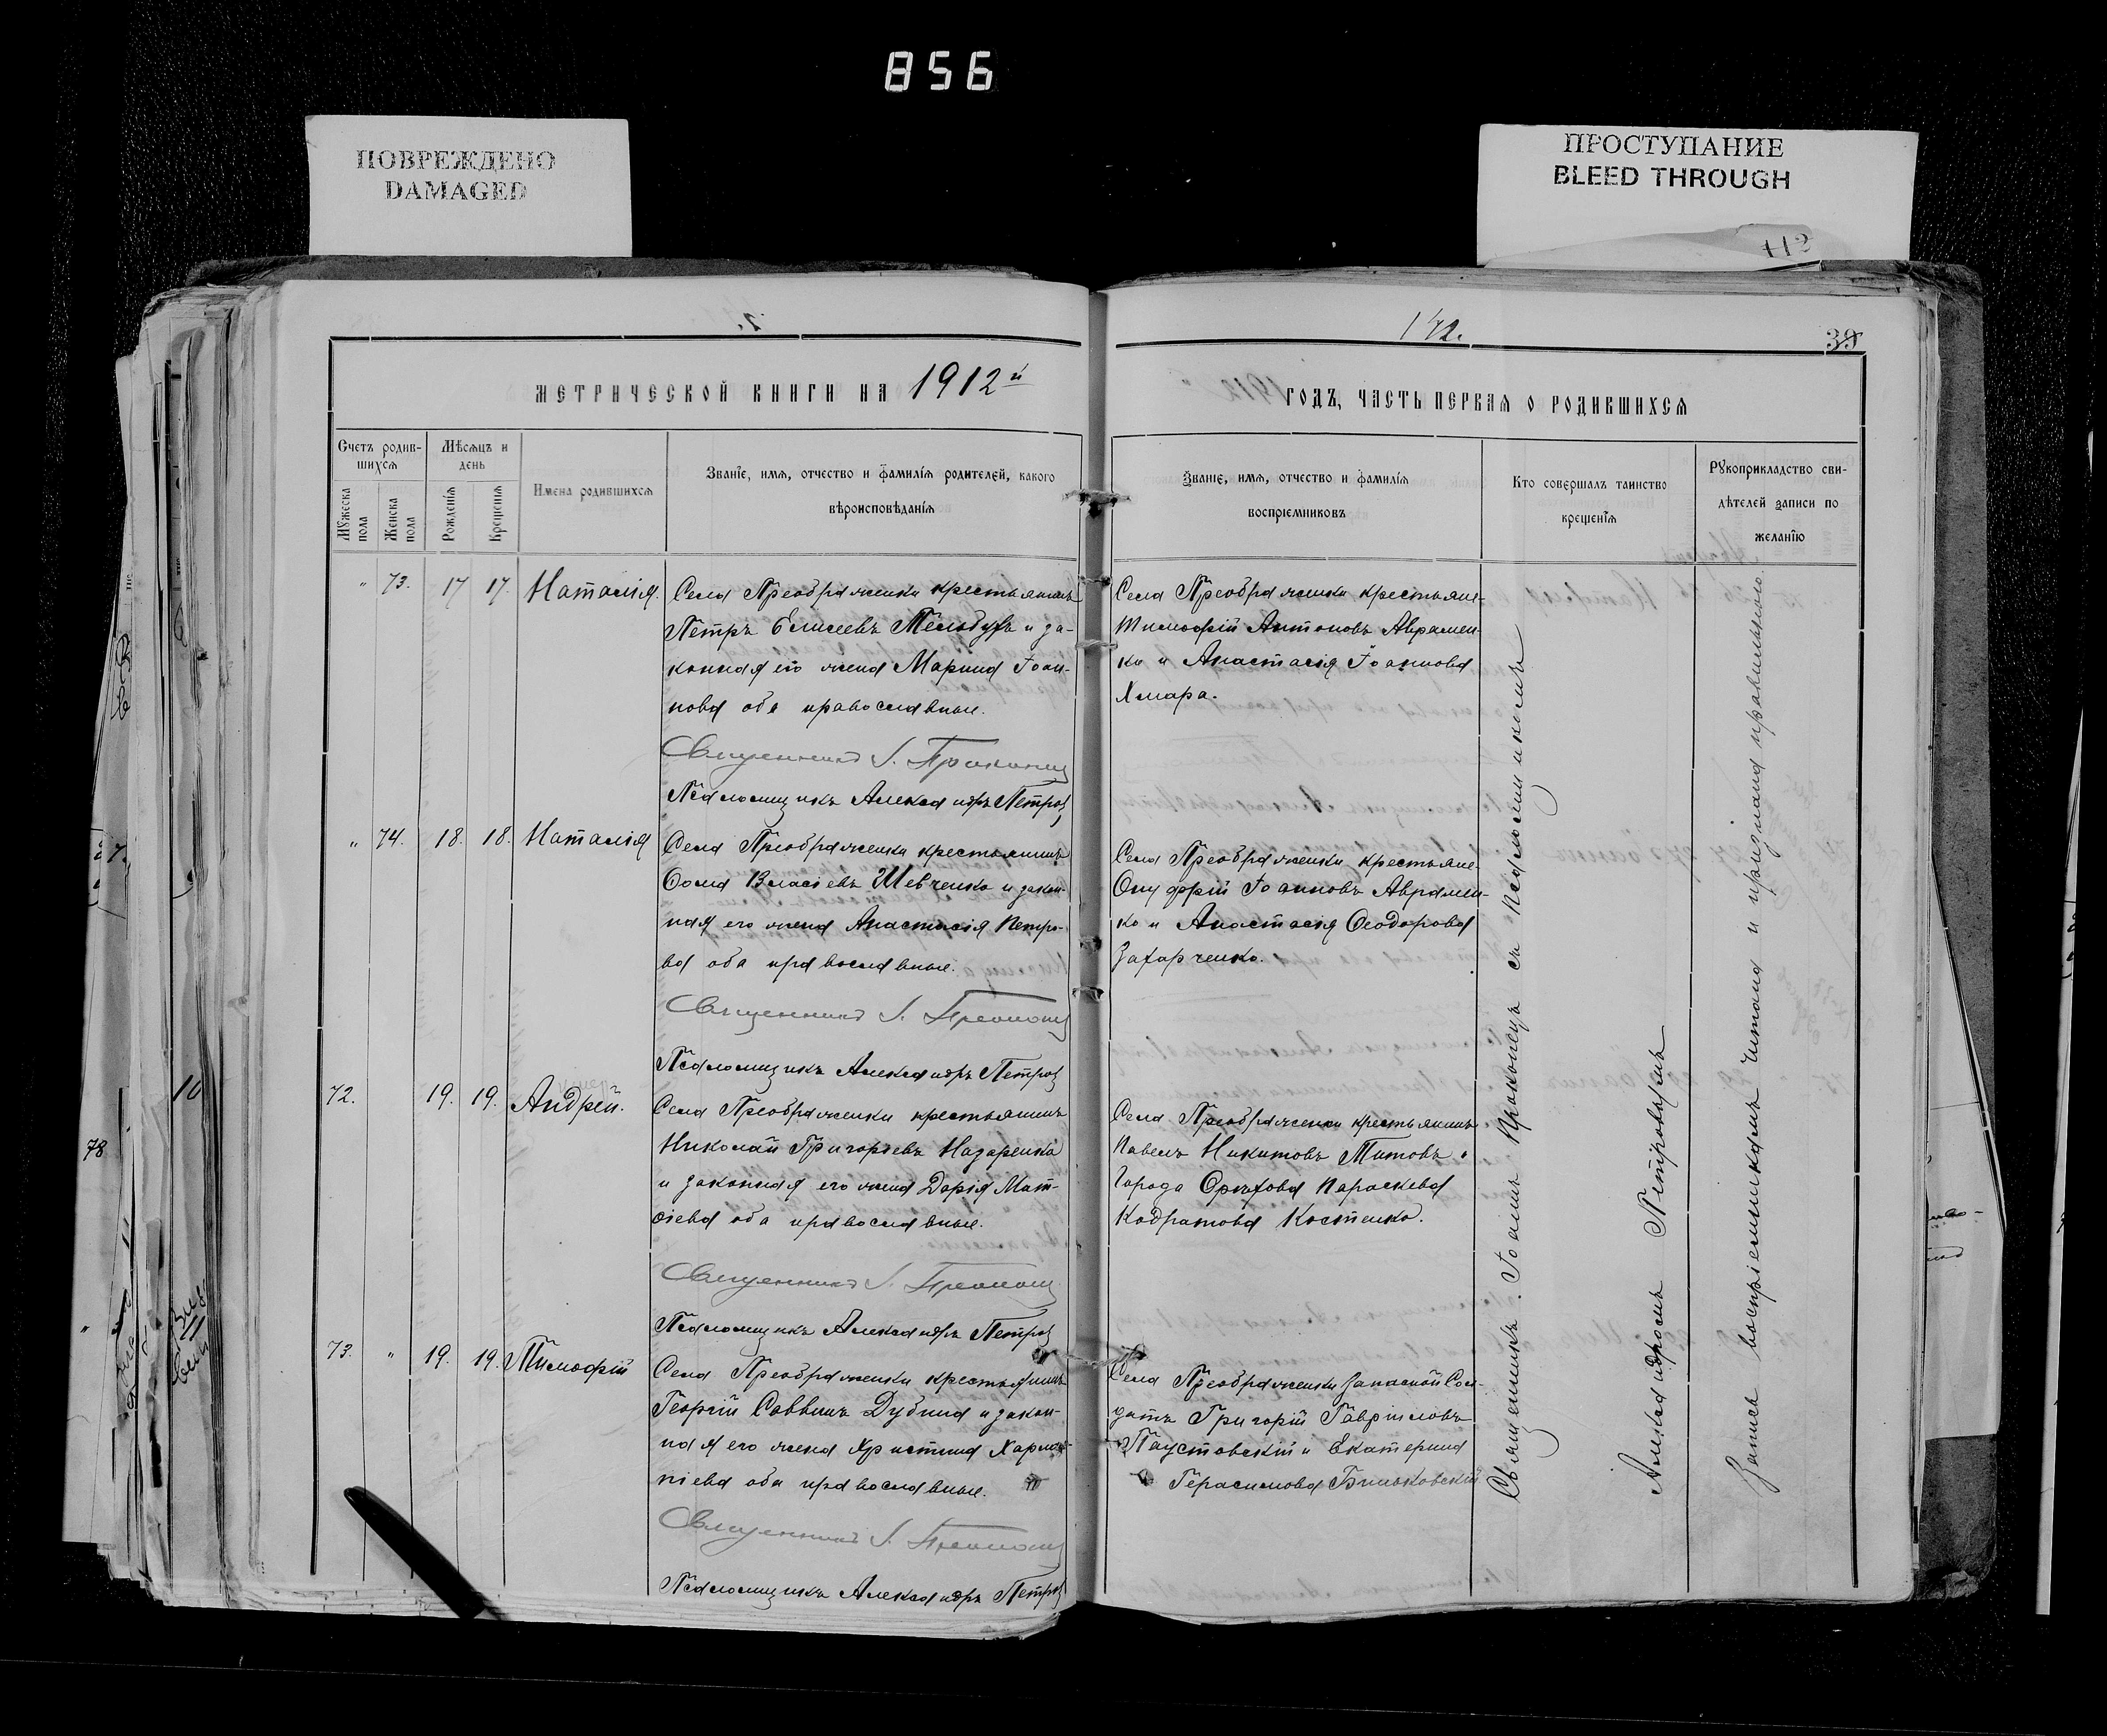 856
ПОВРЕЖДЕНО
DAMAGED
ПРОСТУПАНИЕ
BLEED THROUGH
112
142.
39
МЕТРИЧЕСКОЙ КНИГИ НА 1912й
ГОДЪ, ЧАСТЬ ПЕРВАЯ О РОДИВШИХСЯ
Счетъ родив-
шихся
Мужеска пола
Женска пола
Мѣсяцъ и
день
Рожденія
Крещенія
Имена родившихся
Званіе, имя, отчество и фамилія родителей, какого
вѣроисповѣданія
Званіе, имя, отчество и фамилія
воспріемниковъ
Кто совершалъ таинство
крещенія
Рукоприкладство сви-
дѣтелей записи по
желанію
" 73. 17 17. Наталія.
Села Преображенки крестьянинъ
Петръ Елисеевъ и за-
конная его жена Марина Іоан-
нова оба православные.
Священникъ І. Прокопецъ
Псаломщикъ Александръ Петровъ
Села Преображенки крестьяне
Тимофій Антоновъ Авра­мен-
ко и Анастасія Іоаннова
Хмара.
" 74. 18. 18. Наталія
Села Преображенки крестьянинъ
Ѳома Власіевъ Шевченко и закон-
ная его жена Анастасія Петро-
ва оба православные.
Священникъ І. Прокопецъ
Псаломщикъ Александръ Петровъ
Села Преображенки крестьяне
Онуфрій Іоанновъ Авра­мен-
ко и Анастасія Ѳеодорова
Захарченко.
72. 19. 19. Андрей.
Села Преображенки крестьянинъ
Николай Григорьевъ Назаренко
и законная его жена Дарія Мат-
ѳіева оба православные.
Священникъ І. Прокопецъ
Псаломщикъ Александръ Петровъ
Села Преображенки крестьянинъ
Павелъ Никитовъ Титовъ и
Города Орѣхова Параскева
Кодратова Костенко.
73. " 19. 19. Тимофій
Села Преображенки крестьянинъ
Георгій Саввинъ Дубина и закон-
ная его жена Христина Харлам-
піева оба православные.
Священникъ І. Прокопецъ
Псаломщикъ Александръ Петровъ
Села Преображенки запасной Сол-
датъ Григорій Гавріиловъ
Паустовскій и Екатерина
Герасимова
Священникъ Іоаннъ Прокопецъ съ псаломщикомъ
Александромъ Петровымъ
Запись воспріемниками читана и признана правильною.